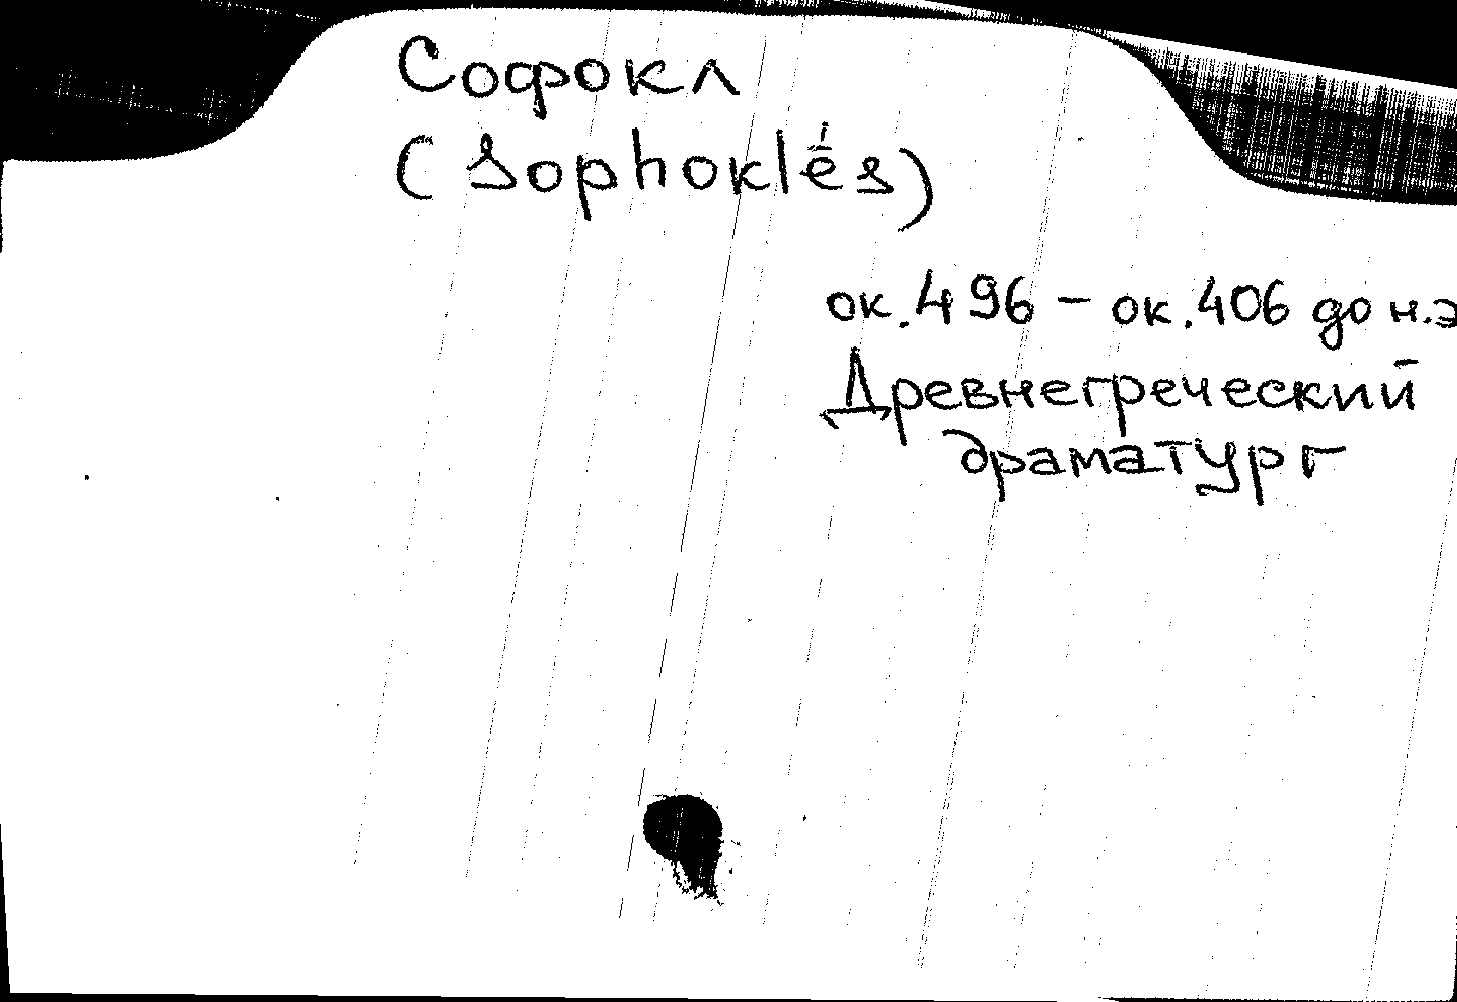 Софокл
(Sophoklḗs)
ок. 496 – ок. 406 до н.э
Древнегреческий
драматург